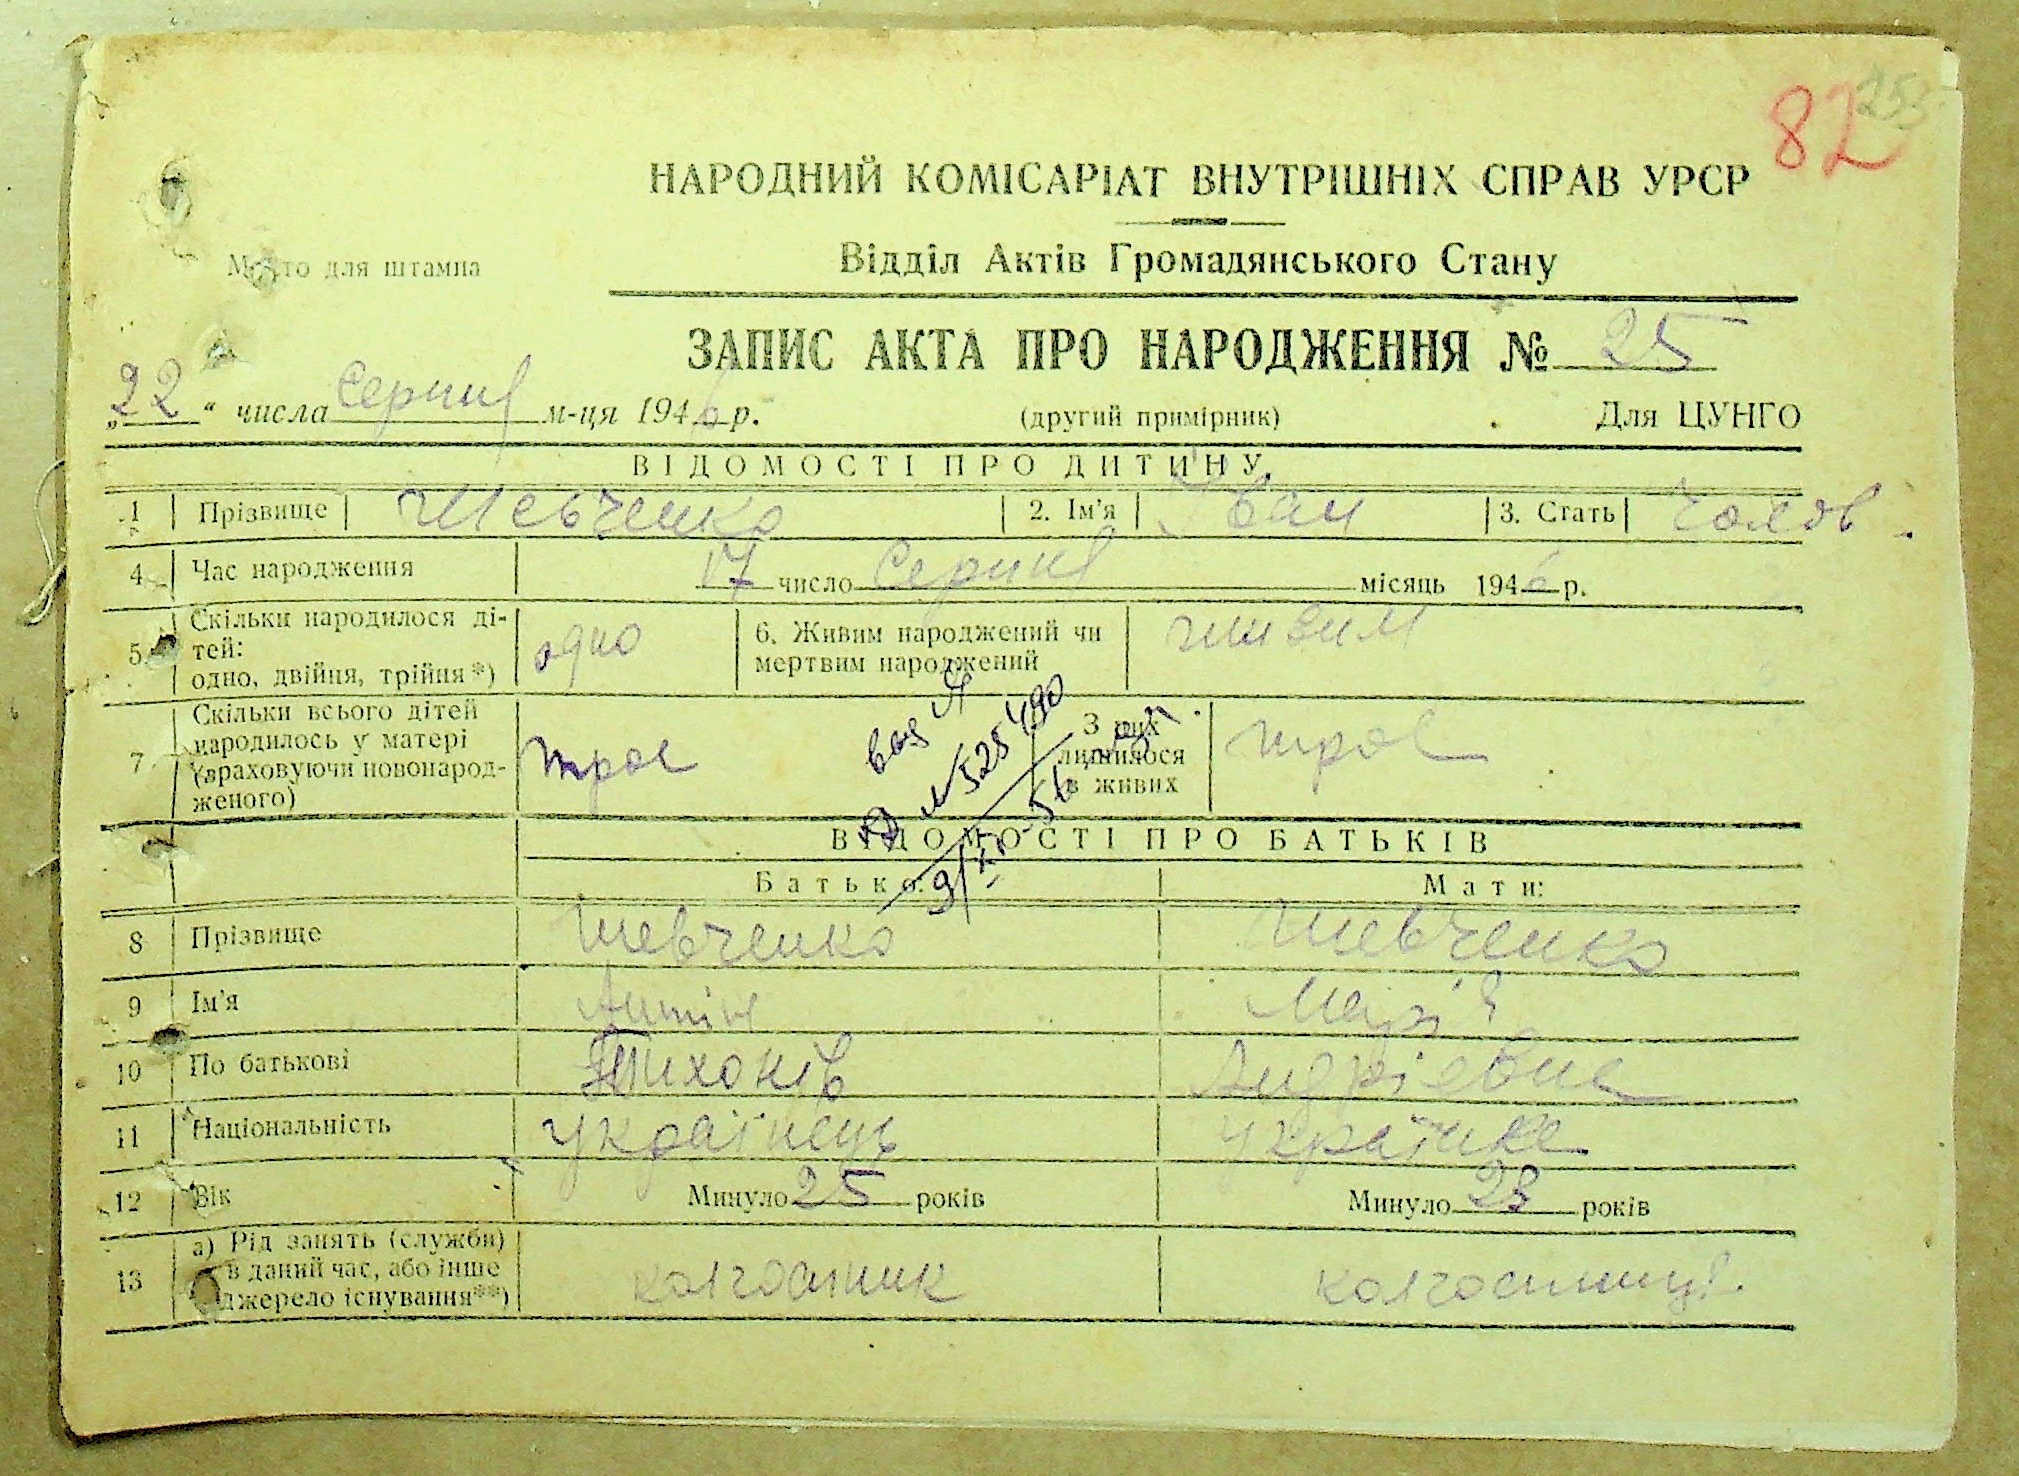 82 253
НАРОДНИЙ КОМІСАРІАТ ВНУТРІШНІХ СПРАВ УРСР
Місто для штампа
Відділ Актів Громадянського Стану
ЗАПИС АКТА ПРО НАРОДЖЕННЯ № 25
„22“ числа Серпня м-ця 1946 р. (другий примірник) Для ЦУНГО
ВІДОМОСТІ ПРО ДИТИНУ
1 Прізвище Шевченко 2. Ім'я Іван 3. Стать Чолов.
4 Час народження 17 число Серпня місяць 1946 р.
5 Скільки народилося ді-
тей:
одно, двійня, трійня*) одно 6. Живим народжений чи
мертвим народжений живим
7 Скільки всього дітей
народилось у матері
(враховуючи новонарод-
женого) троє З них
лишилося
в живих троє
№ 525490
ВІДОМОСТІ ПРО БАТЬКІВ
Батько: Мати:
8 Прізвище Шевченко Шевченко
9 Ім'я Антін Марія
10 По батькові Тихонів Андріевна
11 Національність Українець Українка
12 Вік Минуло 25 років Минуло 23 років
13 а) Рід занять (служби)
в даний час, або інше
джерело існування**) колгоспник колгоспниця.